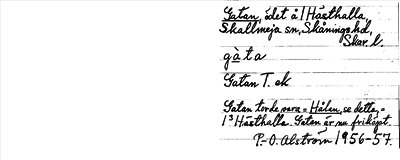 Gatan, ödet å 1 Hästhalla,
Skallmeja sn, Skånings hd,
Skar. l.
gàta
Gatan T. ek
Gatan torde vara = Hålan, se detta, =
1³ Hästhalla. Gatan är nu friköpt.
P.-O. Alström 1956-57.